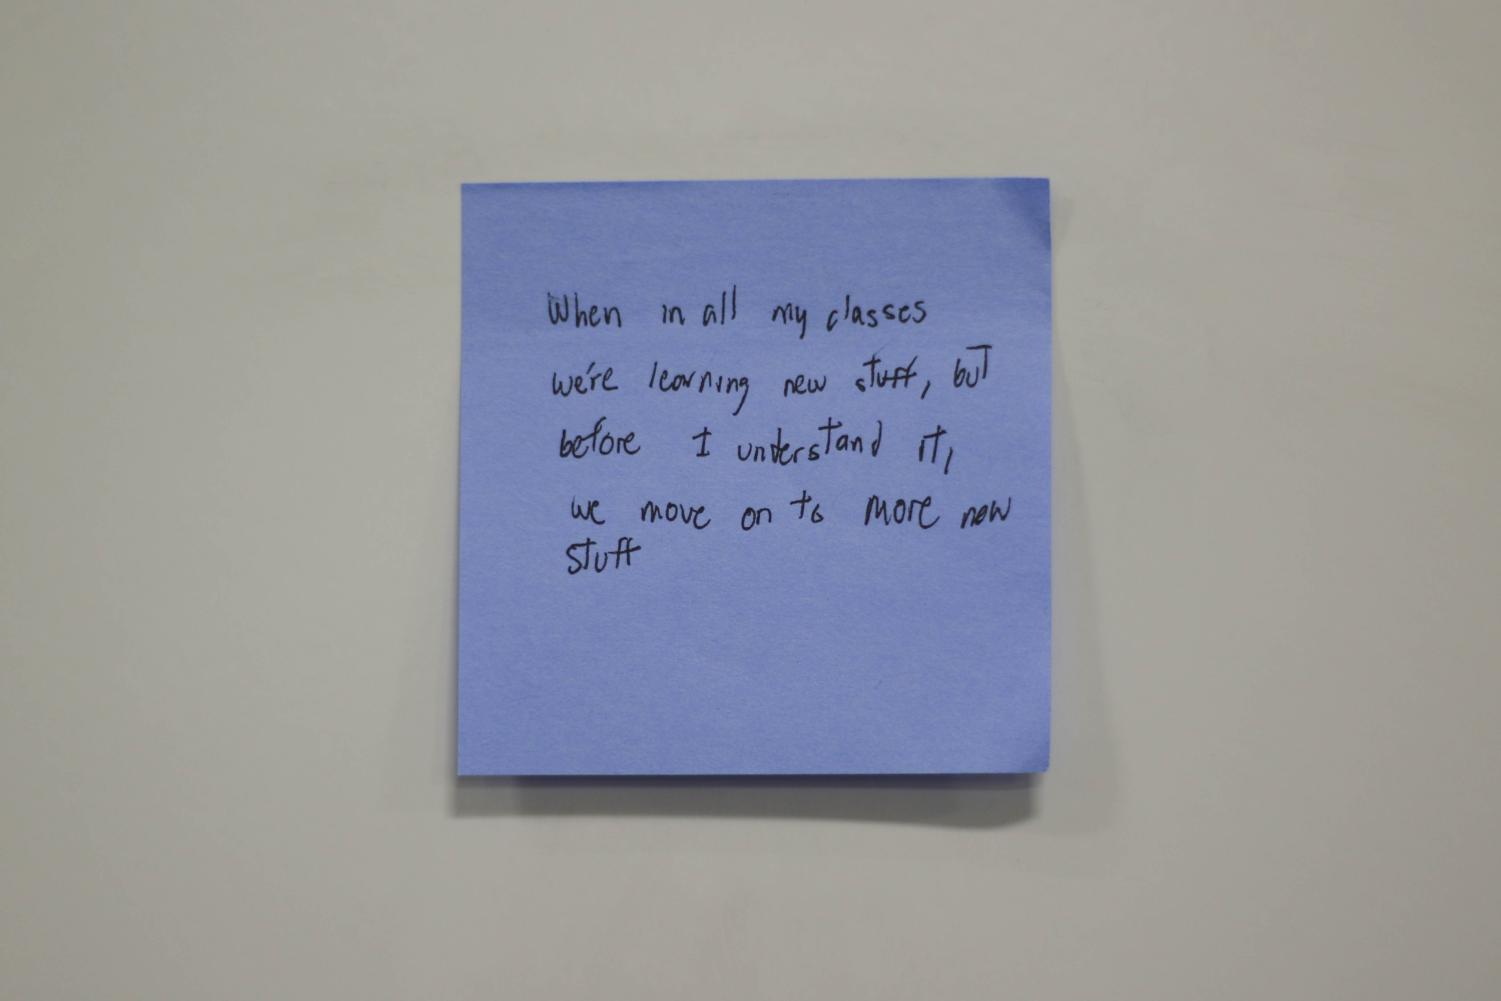 When in all my classes
we're learning new stuff, but
before I understand it,
we move on to more new
stuff